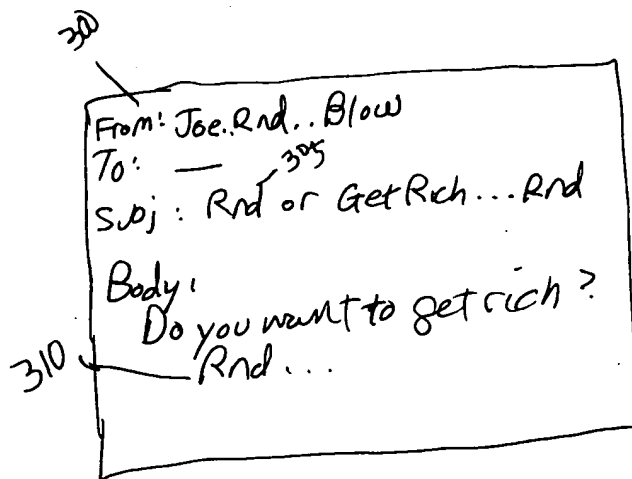 300
From: Joe.Rnd..Blow
To: —
305
Subj: Rnd or Get Rich...Rnd
Body:
Do you want to get rich?
310
Rnd...